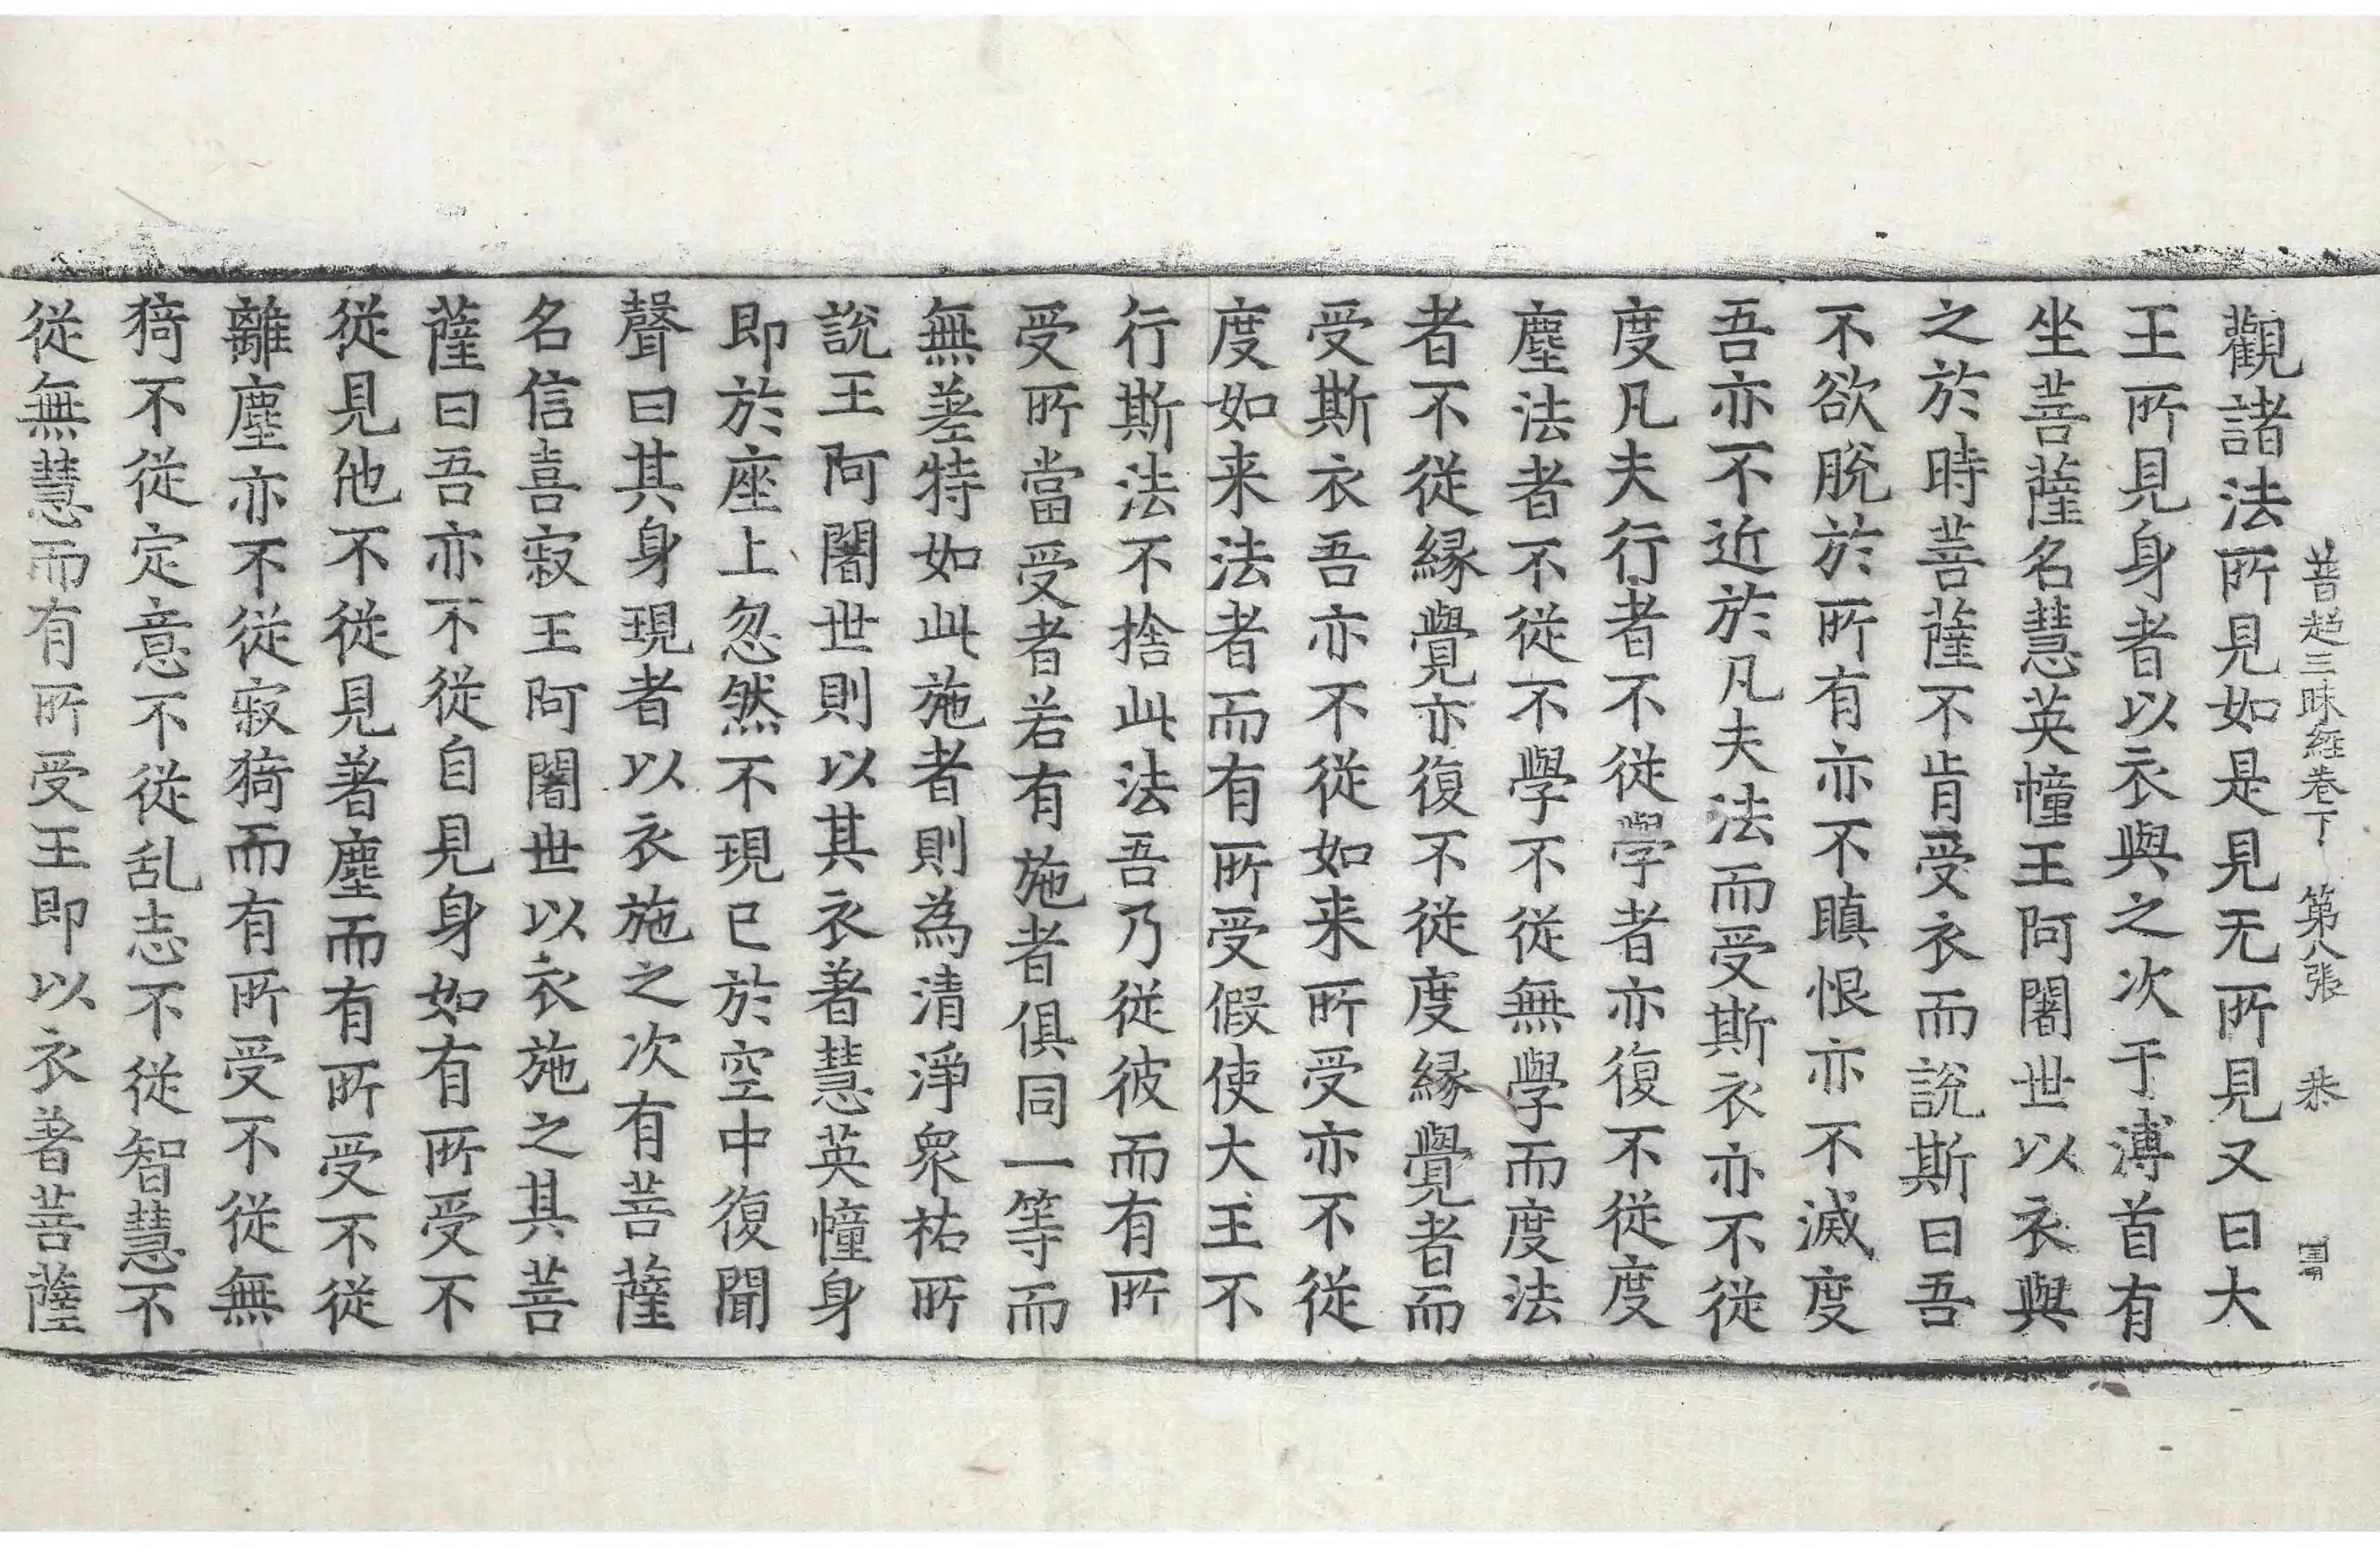 普超三昧經卷下 第八張 恭
觀諸法所見如是見无所見又曰大
王所見身者以衣與之次于溥首有
坐菩薩名慧英幢王阿闍世以衣與
之於時菩薩不肯受衣而說斯曰吾
不欲脫於所有亦不瞋恨亦不滅度
吾亦不近於凡夫法而受斯衣亦不從
度凡夫行者不從學者亦復不從度
塵法者不從不學不從無學而度法
者不從緣覺亦復不從度緣覺者而
受斯衣吾亦不從如来所受亦不從
度如来法者而有所受假使大王不
行斯法不捨此法吾乃從彼而有所
受所當受者若有施者俱同一等而
無差特如此施者則為清淨衆祐所
說王阿闍世則以其衣著慧英幢身
即於座上忽然不現已於空中復聞
聲曰其身現者以衣施之次有菩薩
名信喜寂王阿闍世以衣施之其菩
薩曰吾亦不從自見身如有所受不
從見他不從見著塵而有所受不從
離塵亦不從寂猗而有所受不從無
猗不從定意不從乱志不從智慧不
從無慧而有所受王即以衣著菩薩